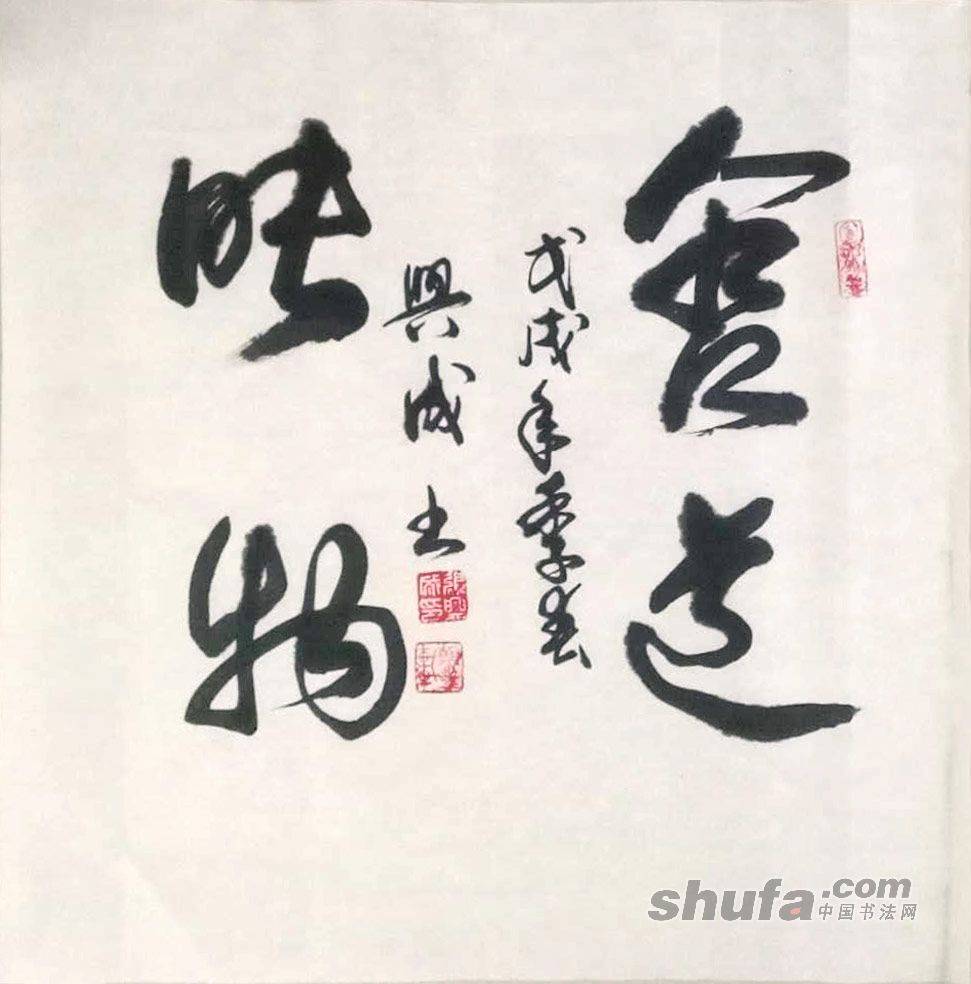 含道
映物
戊戌年季春
興成书
shufa.com
中国书法网